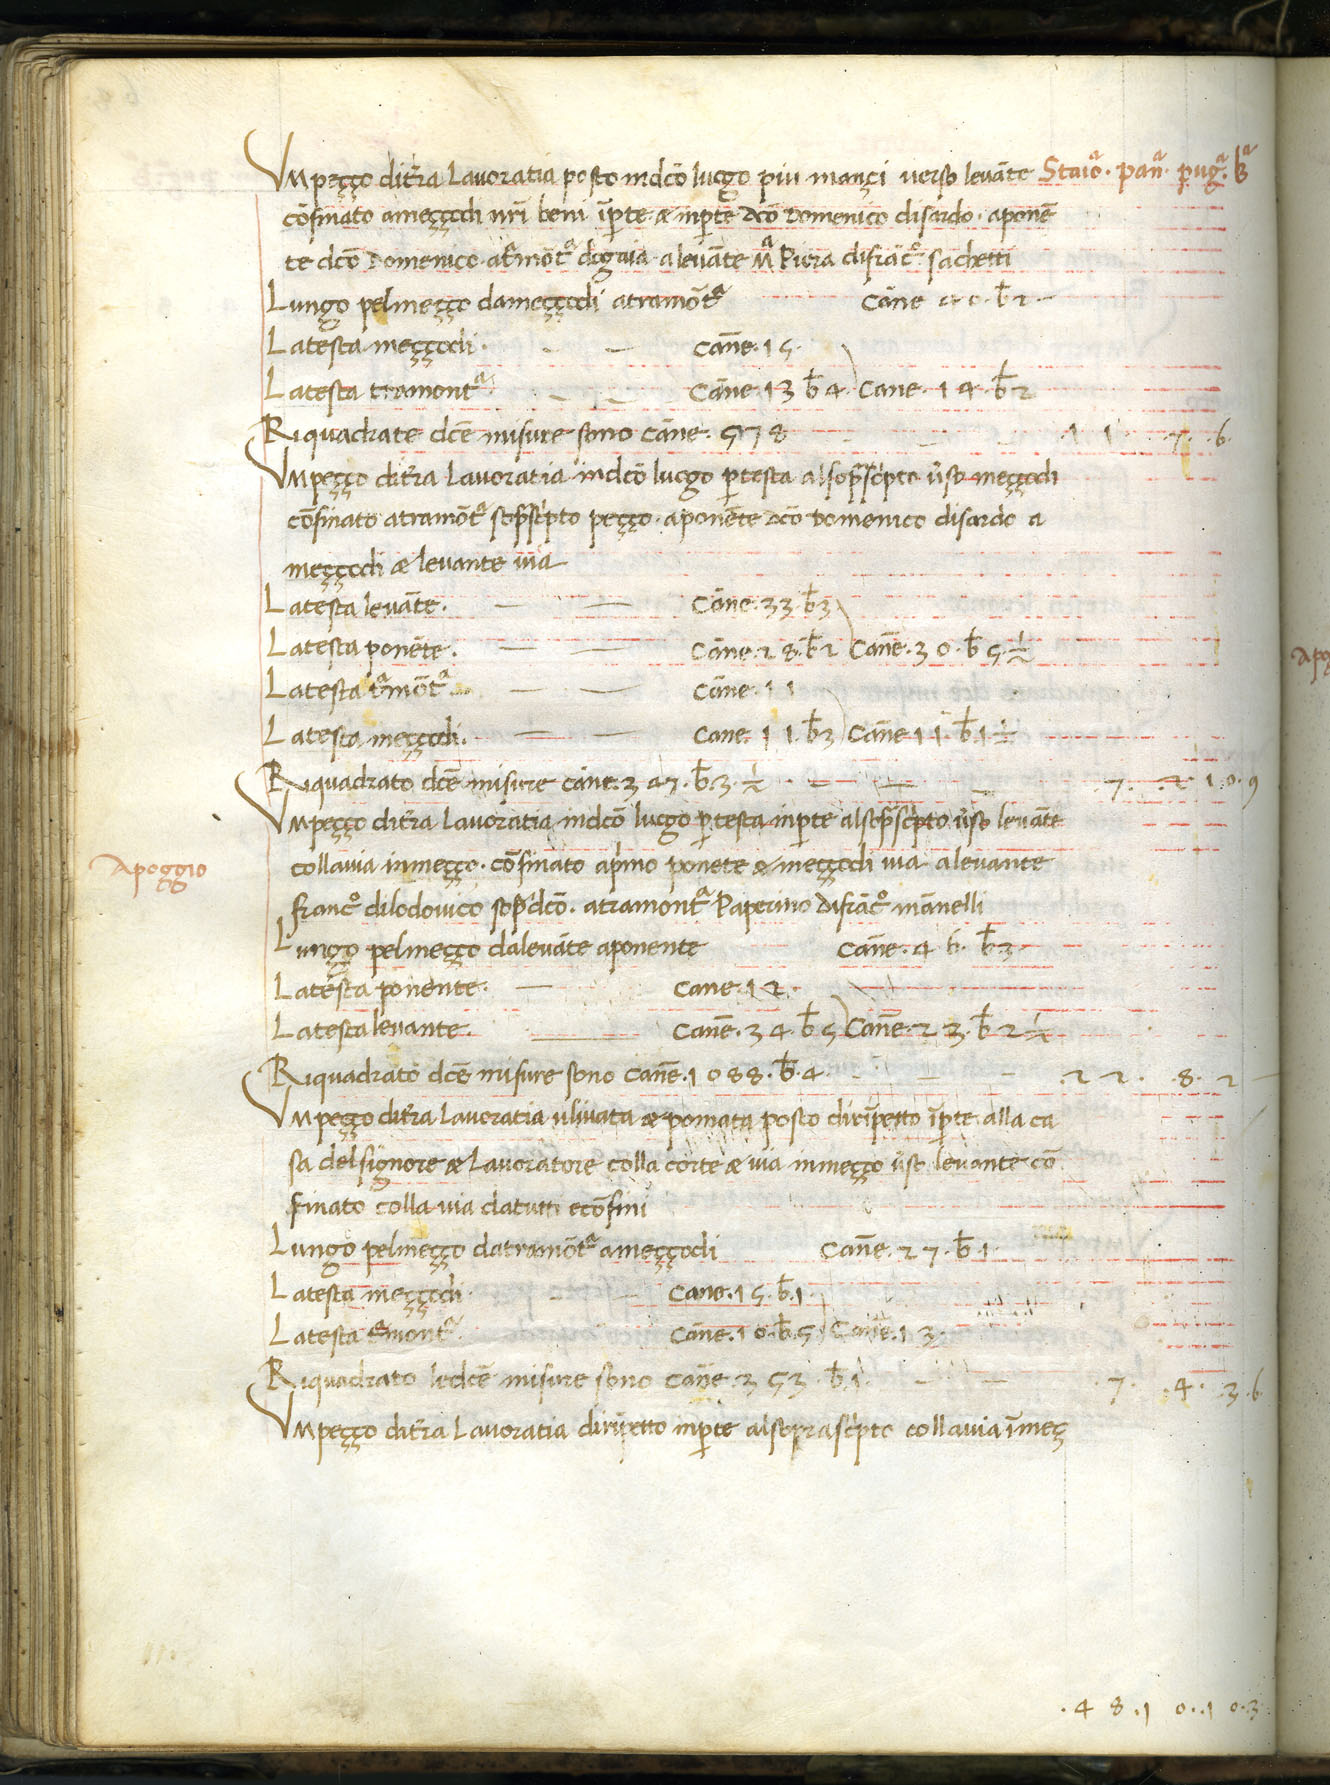 Vmpezzo dit̄ra Lauoratia posto indc̄o luego piu inanzi uerso leuāte Staioᵃ. panᵃ. pugᵃ. b̄ᵃ
cōfinato amezzodi nr̄i beni īpte & inpte dc̄o Domenico disardo. aponē
te dc̄o Domenico. at̄rmōtᵃ diguia. aleuāte Mᵃ Piera difrāc̊. sachetti
Lungo pelmezzo damezzodi atramōtᵃ Cāne 40. b̄2
Latesta mezzodi. Cāne. 15.
Latesta tramontᵃ Cāne. 13 b̄4. Cane. 14. b̄2
Riquadrate dcē misure sono cāne. 578 11. 7. 6.
Vmpezzo dit̄ra Lauoratia indc̄o luego ptesta alsop̄scīpto ūso mezzodi
cōfinato atramōtᵃ sop̄scīpto pezzo. aponēte dc̄o Domenico disardo a
mezzodi & leuante uia
Latesta leuāte. Cāne. 33. b̄3
Latesta ponēte. Cāne. 28. b̄2 Canē. 30. b̄5. ½
Latesta tᵃmōtᵃ. Cāne. 11
Latesta mezzodi. Cane. 11. b̄3 Canē 11. b̄1 ½
Riquadrato dcē misure cāne. 347. b̄.3. ½ .7. .2. 10. 9
Vmpezzo dit̄ra Lauoratia indc̄o luego ptesta inpte alsop̄scīpto ūso leuāte
collauia inmezzo. cōfinato apīmo ponete & mezzodi uia aleuante
Apoggio
franc̊ dilodouico sop̄dc̄o. atramontᵃ Paperino difrāc̊ mānelli
Lungo pelmezzo daleuāte aponente Canē. 46. b̄3
Latēsta ponente. Cane. 12.
Latesta leuante Canē. 34. b̄5 Canē. 23. b̄2 ½
Riquadrato dcē misure sono Canē. 1088. b̄.4. .22. .8. 2
Vmpezzo dit̄ra Lauoratia uliuata & pomata posto dirīpetto īpte alla ca
sa delsignore & Lauoratore colla corte & uia inmezzo ūso leuante cō
finato colla uia datutti ecōfini
Lungo pelmezzo datramōtᵃ amezzodi Canē. 27. b̄1.
Latesta mezzodi Cane. 15. b̄.1.
Latesta tᵃmontᵃ. Cāne. 10. b̄.5 Canē. 13.
Riquadrato ledcē misure sono canē. 353. b̄.1. .7. .4. .3.6
Vmpezzo dit̄ra Lauoratia dirīpetto inpte alsoprascīpto collauia īmez
.48.10..10.3